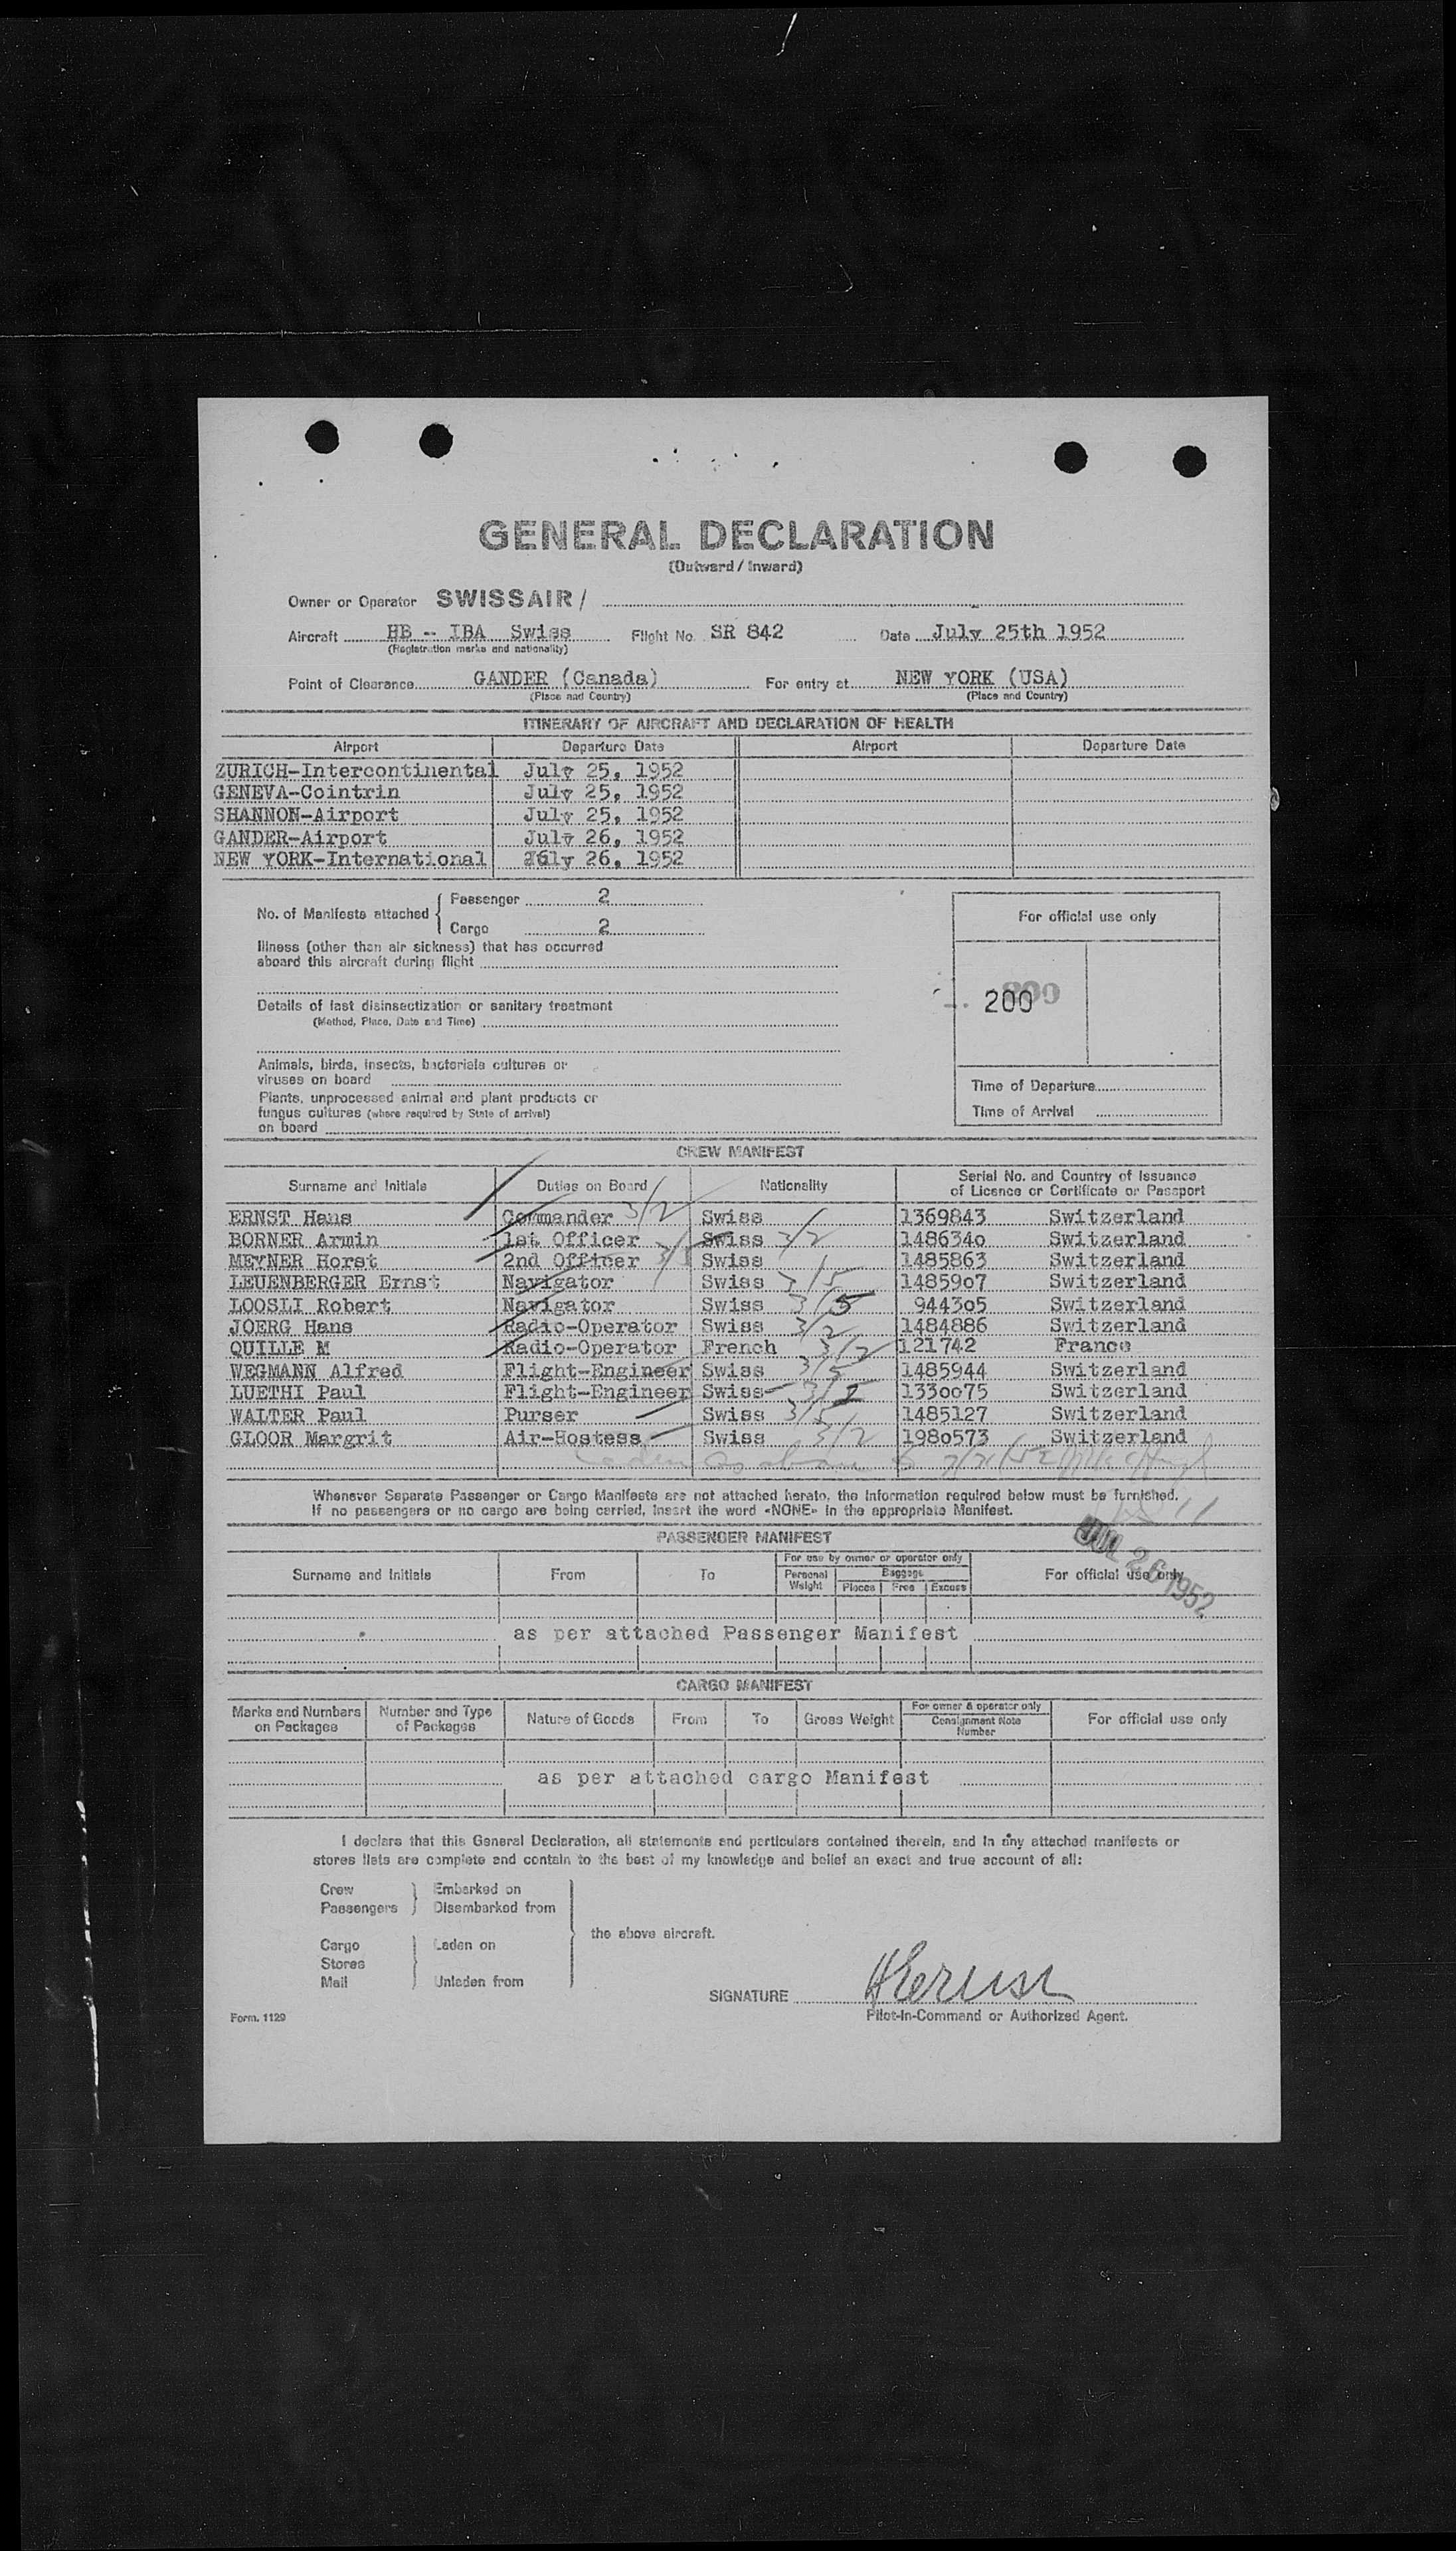 GENERAL DECLARATION
(Outward / Inward)
Owner or Operator SWISSAIR /
Aircraft HB - IBA Swiss Flight No. SR 842 Date July 25th 1952
(Registration marks and nationality)
Point of Clearance GANDER (Canada) For entry at NEW YORK (USA)
(Place and Country) (Place and Country)
ITINERARY OF AIRCRAFT AND DECLARATION OF HEALTH
Airport Departure Date Airport Departure Date
ZURICH-Intercontinental July 25, 1952
GENEVA-Cointrin July 25, 1952
SHANNON-Airport July 25, 1952
GANDER-Airport July 26, 1952
NEW YORK-International July 26, 1952
No. of Manifests attached
Passenger 2
Cargo 2
For official use only
Illness (other than air sickness) that has occurred
aboard this aircraft during flight
200
Details of last disinsectization or sanitary treatment
(Method, Place, Date and Time)
Animals, birds, insects, bacteriala cultures or
viruses on board
Time of Departure
Plants, unprocessed animal and plant products or
fungus cultures (where required by State of arrival)
on board
Time of Arrival
CREW MANIFEST
Surname and Initials Duties on Board Nationality Serial No. and Country of Issuance
of Licence or Certificate or Passport
ERNST Hans Commander 3/2 Swiss 1369843 Switzerland
BORNER Armin 1st Officer Swiss 3/2 148634o Switzerland
MEYNER Horst 2nd Officer 3/5 Swiss 1485863 Switzerland
LEUENBERGER Ernst Navigator Swiss 3/5 14859o7 Switzerland
LOOSLI Robert Navigator Swiss 3/5 9443o5 Switzerland
JOERG Hans Radio-Operator Swiss 3/2 1484886 Switzerland
QUILLE M Radio-Operator French 3/2 121742 France
WEGMANN Alfred Flight-Engineer Swiss 3/5 1485944 Switzerland
LUETHI Paul Flight-Engineer Swiss 3/2 133oo75 Switzerland
WALTER Paul Purser Swiss 3/5 1485127 Switzerland
GLOOR Margrit Air-Hostess Swiss 3/2 198o573 Switzerland
Whenever Separate Passenger or Cargo Manifests are not attached hereto, the information required below must be furnished.
If no passengers or no cargo are being carried, insert the word «NONE» in the appropriate Manifest.
PASSENGER MANIFEST
JUL 26 1952
Surname and Initials From To For use by owner or operator only
Personal Weight Baggage
Pieces Free Excess
For official use only
as per attached Passenger Manifest
CARGO MANIFEST
Marks and Numbers on Packages Number and Type of Packages Nature of Goods From To Gross Weight For owner & operator only
Consignment Note Number
For official use only
as per attached cargo Manifest
I declare that this General Declaration, all statements and particulars contained therein, and in any attached manifests or
stores lists are complete and contain to the best of my knowledge and belief an exact and true account of all:
Crew Embarked on
Passengers Disembarked from
the above aircraft.
Cargo Laden on
Stores
Mail Unladen from
SIGNATURE HErnst
Pilot-in-Command or Authorized Agent.
Form. 1129